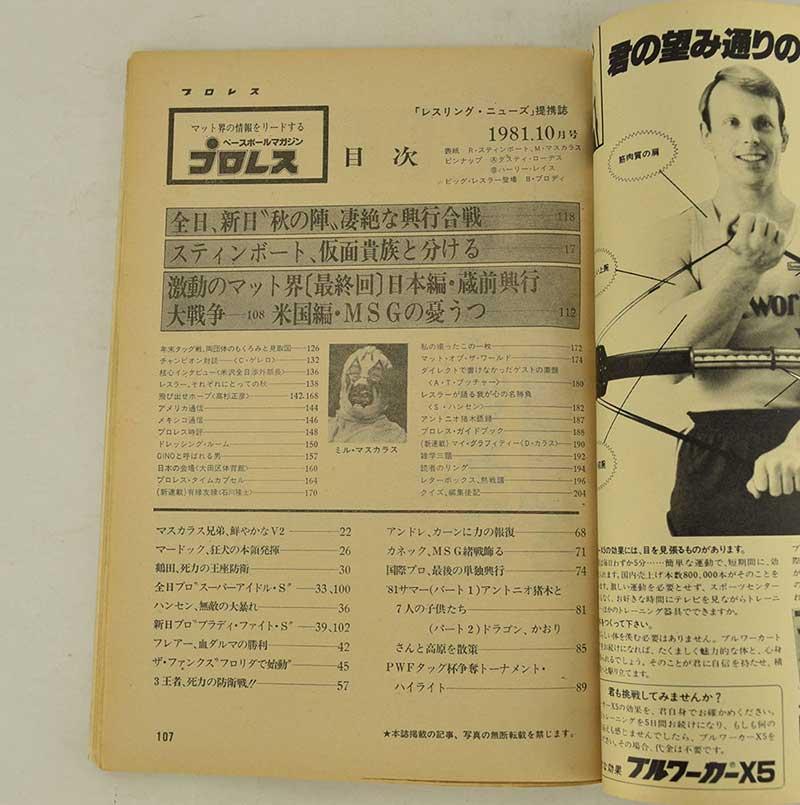 プロレス
マット界の情報をリードする
ベースボールマガジン
プロレス
目次
「レスリング・ニューズ」提携誌
1981.10月号
表紙 R・スティンボート、M・マスカラス
ピンナップ Ⓐダスティ・ローデス
Ⓑハーリー・レイス
ビッグ・レスラー登場 B・ブロディ
全日、新日〝秋の陣〟凄絶な興行合戦 118
スティンボート、仮面貴族と分ける 17
激動のマット界〔最終回〕日本編・蔵前興行
大戦争―108 米国編・MSGの憂うつ 112
年末タッグ戦、両団体のもくろみと見取図 126
チャンピオン対談 〈C・ゲレロ〉 132
核心インタビュー〈米沢全日渉外部長〉 136
レスラー、それぞれにとっての秋 138
飛び出せホープ〈高杉正彦〉 142.168
アメリカ通信 144
メキシコ通信 146
プロレス時評 148
ドレッシング・ルーム 150
GINOと呼ばれる男 157
日本の会場〈大田区体育館〉 160
プロレス・タイムカプセル 164
〔新連載〕有縁友縁〈石川隆士〉 170
ミル・マスカラス
私の撮ったこの一枚 172
マット・オブ・ザ・ワールド 174
ダイレクトで書けなかったゲストの素顔
〈A・T・ブッチャー〉 180
レスラーが語る我が心の名勝負
〈S・ハンセン〉 182
アントニオ猪木語録 187
プロレス・ガイドブック 188
〔新連載〕マイ・グラフィティー〈D・カラス〉 190
雑学三題 192
読者のリング 194
レターボックス、熱戦譜 196
クイズ、編集後記 204
マスカラス兄弟、鮮やかなV2 22
マードック、狂犬の本領発揮 26
鶴田、死力の王座防衛 30
全日プロ〝スーパーアイドル・S〟 33,100
ハンセン、無敵の大暴れ 36
新日プロ〝ブラディ・ファイト・S〟 39,102
フレアー、血ダルマの勝利 42
ザ・ファンクス〝フロリダで始動〟 45
3王者、死力の防衛戦!! 57
アンドレ、カーンに力の報復 68
カネック、MSG緒戦飾る 71
国際プロ、最後の単独興行 74
'81サマー(パート1)アントニオ猪木と
7人の子供たち 81
(パート2)ドラゴン、かおり
さんと高原を散策 85
PWFタッグ杯争奪トーナメント・
ハイライト 89
107
★本誌掲載の記事、写真の無断転載を禁じます。
君の望み通りの
筋肉質の肩
X5の効果には、目を見張るものがあります。
日わずか5分……簡単な運動で、短期間に、効
れます。国内売上げ本数800,000本がそのことを
す。激しい運動を必要とせず、スポーツセンター
なく、お好きな時間にテレビを見ながらトレーニ
ーほかのトレーニング器具でできますか。
持つくって下さい。
らしい体を羨む必要はありません。ブルワーカート
をお続けになれば、たくましく魅力的な体と、心身
られるでしょう。そのことが君に自信を持たせ、積
と駆り立てます。
君も挑戦してみませんか？
ーX5の効果を、君自身でお確かめください。
トレーニングを5日間お続けになり、もしも何の
も感じませんでしたら、ブルワーカーX5を
ださい。その場合、代金は不要です。
な効果 ブルワーカー®X5